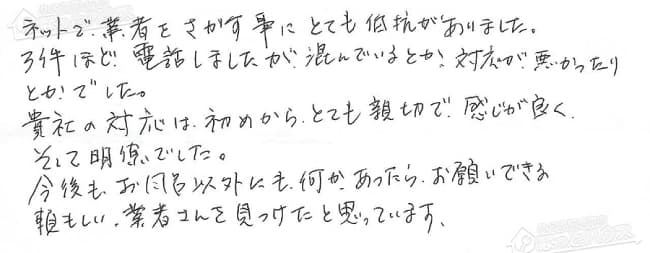 ネットで業者をさがす事にとても低抗がありました。
3件ほど電話しましたが混んでいるとか、対応が悪かったり
とかでした。
貴社の対応は、初めから、とても親切で感じが良く、
そして明瞭でした。
今後も、お風呂以外にも、何かあったら、お願いできる
頼もしい、業者さんを見つけたと思っています、